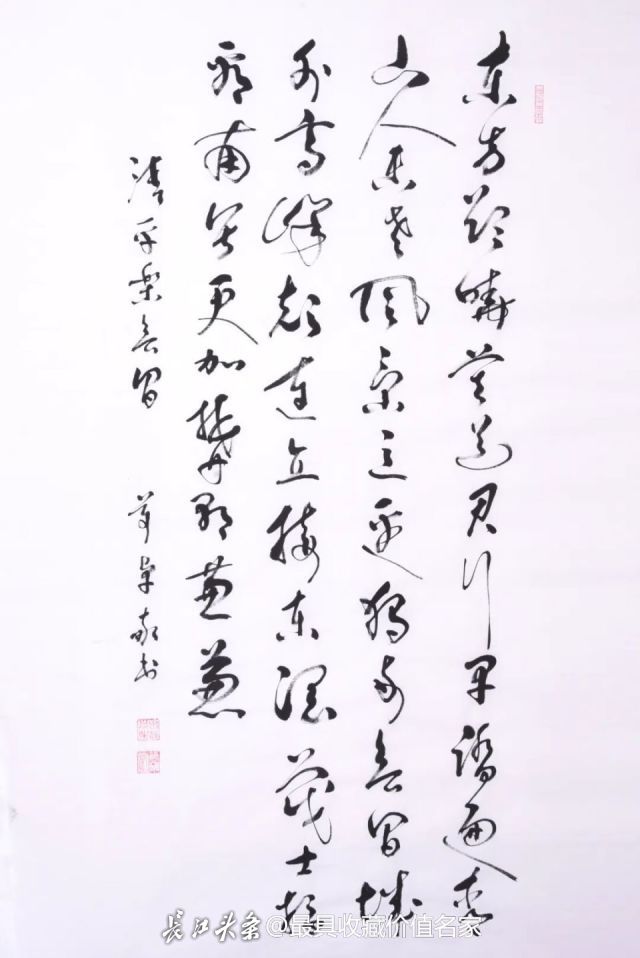 东方欲晓莫道君行早踏遍青
山人未老风景这边独好会昌城
外高峰颠连直接东溟战士指
看南粤更加郁郁葱葱
清平乐会昌
长江头条@最具收藏价值名家